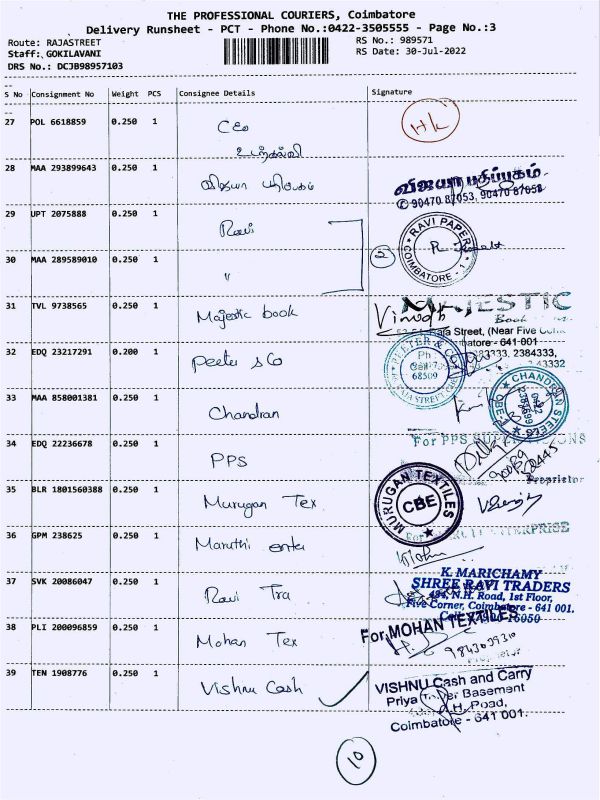 THE PROFESSIONAL COURIERS, Coimbatore
Delivery Runsheet - PCT - Phone No.:0422-3505555 - Page No.:3
Route: RAJASTREET
RS No.: 989571
Staff: GOKILAVANI
RS Date: 30-Jul-2022
DRS No.: DCJB98957103
S No Consignment No Weight PCS Consignee Details Signature
27 POL 6618859 0.250 1 CEO
HK
28 MAA 293899643 0.250 1
விஜயா பதிப்பகம்
✆ 90470 87053, 90470 87058
29 UPT 2075888 0.250 1 Ravi
RAVI PAPER
COIMBATORE - 1
30 MAA 289589010 0.250 1 "
2
31 TVL 9738565 0.250 1 Majestic book
MAJESTIC
Book
Vinoth
Raja Street, (Near Five
641 001
32 EDQ 23217291 0.200 1 Peeter & Co
PEETER &
Ph
RAJA STREET
383333, 2384333,
43332
33 MAA 858001381 0.250 1 Chandran
CHANDRAN STEELS
CBE-1
0422
34 EDQ 22236678 0.250 1 PPS
For PPS
Proprietor
35 BLR 1801560388 0.250 1 Murugan Tex
MURUGAN TEXTILES
CBE
36 GPM 238625 0.250 1 Maruthi enter
For MARUTI ENTERPRISE
37 SVK 20086047 0.250 1 Ravi Tra
K. MARICHAMY
SHREE RAVI TRADERS
N.H. Road, 1st Floor,
Five Corner, Coimbatore - 641 001.
38 PLI 200096859 0.250 1 Mohan Tex
For MOHAN TEXTILES
9843039310
39 TEN 1908776 0.250 1 Vishnu Cash
VISHNU Cash and Carry
Priya Tower Basement
N.H. Road,
Coimbatore - 641 001.
10